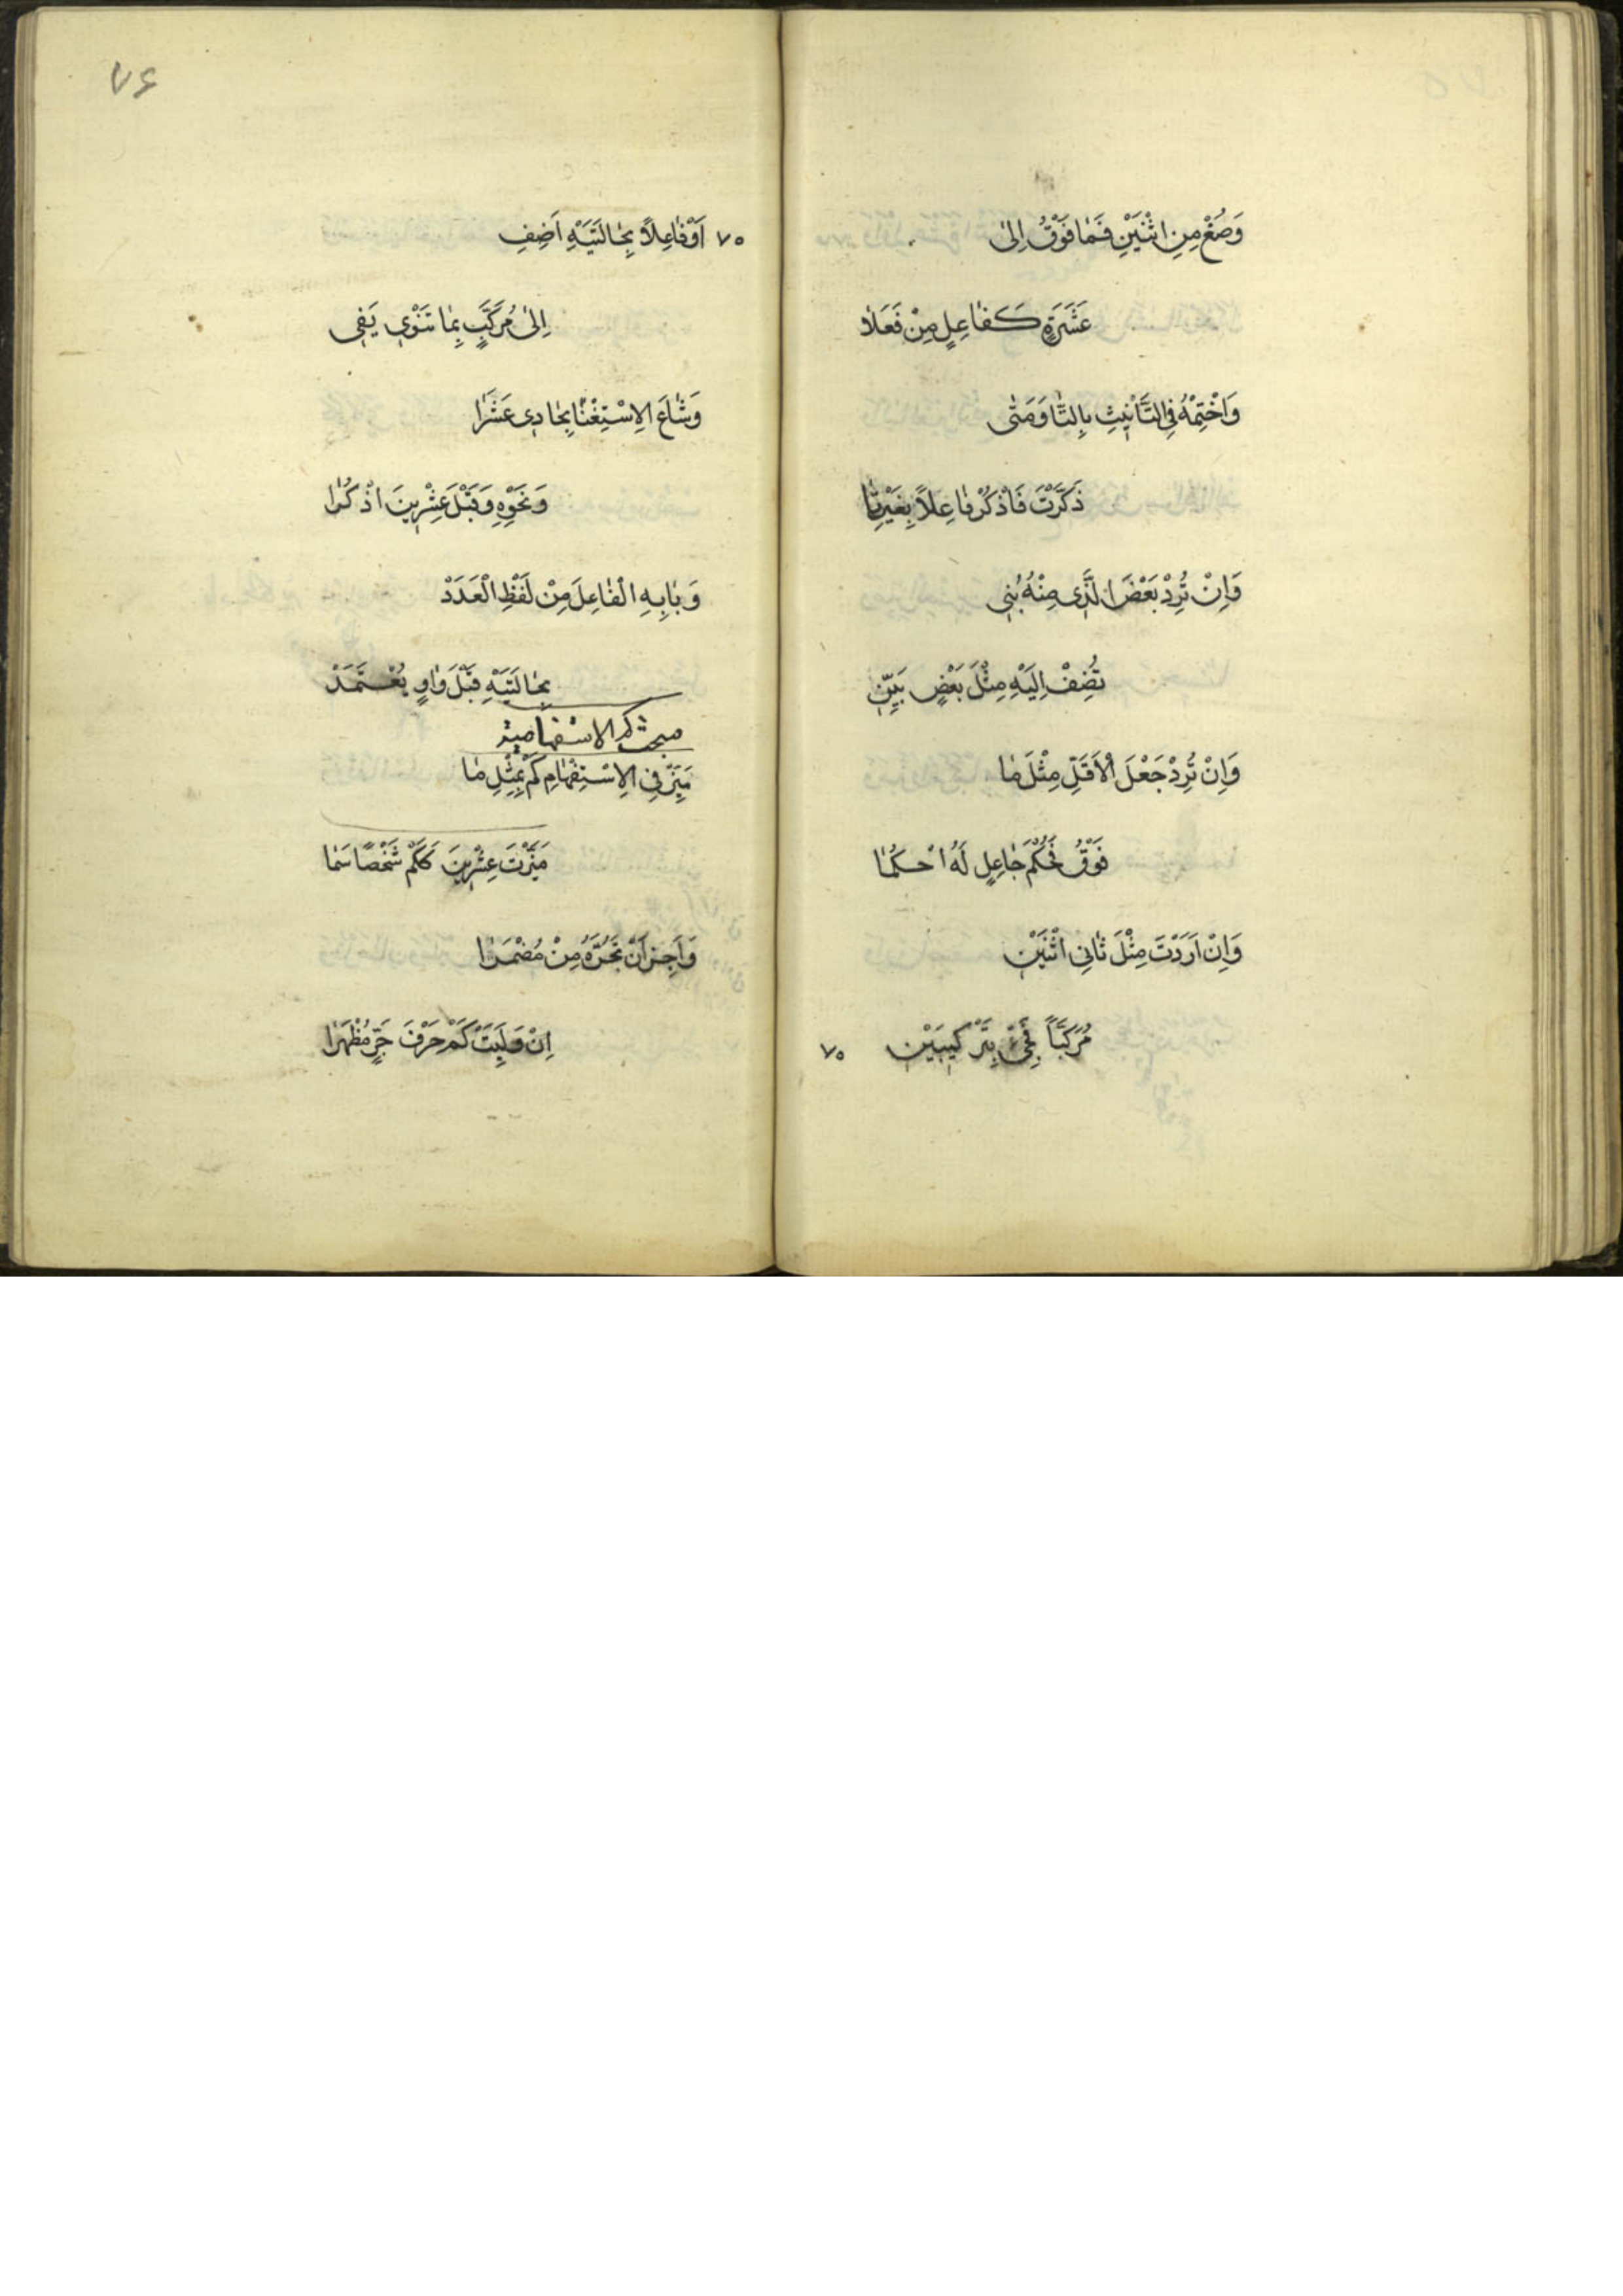 وَصُغْ مِنِ اثْنَيْنِ فَمٰا فَوْقُ اِلىٰ
عَشَرَةٍ كَفٰاعِلٍ مِنْ فَعَلاٰ
وَاخْتِمْهُ فِي التَّأْنِيثِ بِالتّٰا وَمَتٰى
ذَكَّرْتَ فَاذْكُرْ فٰاعِلاً بِغَيْرِ تٰا
وَاِنْ تُرِدْ بَعْضَ الَّذِى مِنْهُ بُنِى
تُضِفْ اِلَيْهِ مِثْلَ بَعْضٍ بَيِّنِ
وَاِنْ تُرِدْ جَعْلَ الْاَقَلِّ مِثْلَ مٰا
فَوْقُ فَحُكْمَ جٰاعِلٍ لَهُ احْكُمٰا
وَاِنْ اَرَدْتَ مِثْلَ ثٰانِى اثْنَيْنِ
مُرَكَّبًا فَجِئْ بِتَرْكِيبَيْنِ
٧٥
٧۶
٧٥ اَوْ فٰاعِلاً بِحٰالَتَيْهِ اَضِفِ
اِلىٰ مُرَكَّبٍ بِمٰا تَنْوِى يَفِى
وَشٰاعَ الِاسْتِغْنٰا بِحٰادِى عَشَرٰا
وَنَحْوِهِ وَقَبْلَ عِشْرِينَ اذْكُرٰا
وَبٰابِهِ الْفٰاعِلَ مِنْ لَفْظِ الْعَدَدْ
بِحٰالَتَيْهِ قَبْلَ وٰاوٍ يُعْتَمَدْ
مبحث كم الاسْتفهامية
مَيِّزْ فِى الِاسْتِفْهٰامِ كَمْ بِمِثْلِ مٰا
مَيَّزْتَ عِشْرِينَ كَكَمْ شَخْصًا سَمٰا
وَاَجِزْ اَنْ تَجُرَّهُ مِنْ مُضْمَرًا
اِنْ وَلِيَتْ كَمْ حَرْفَ جَرٍّ مُظْهَرًا